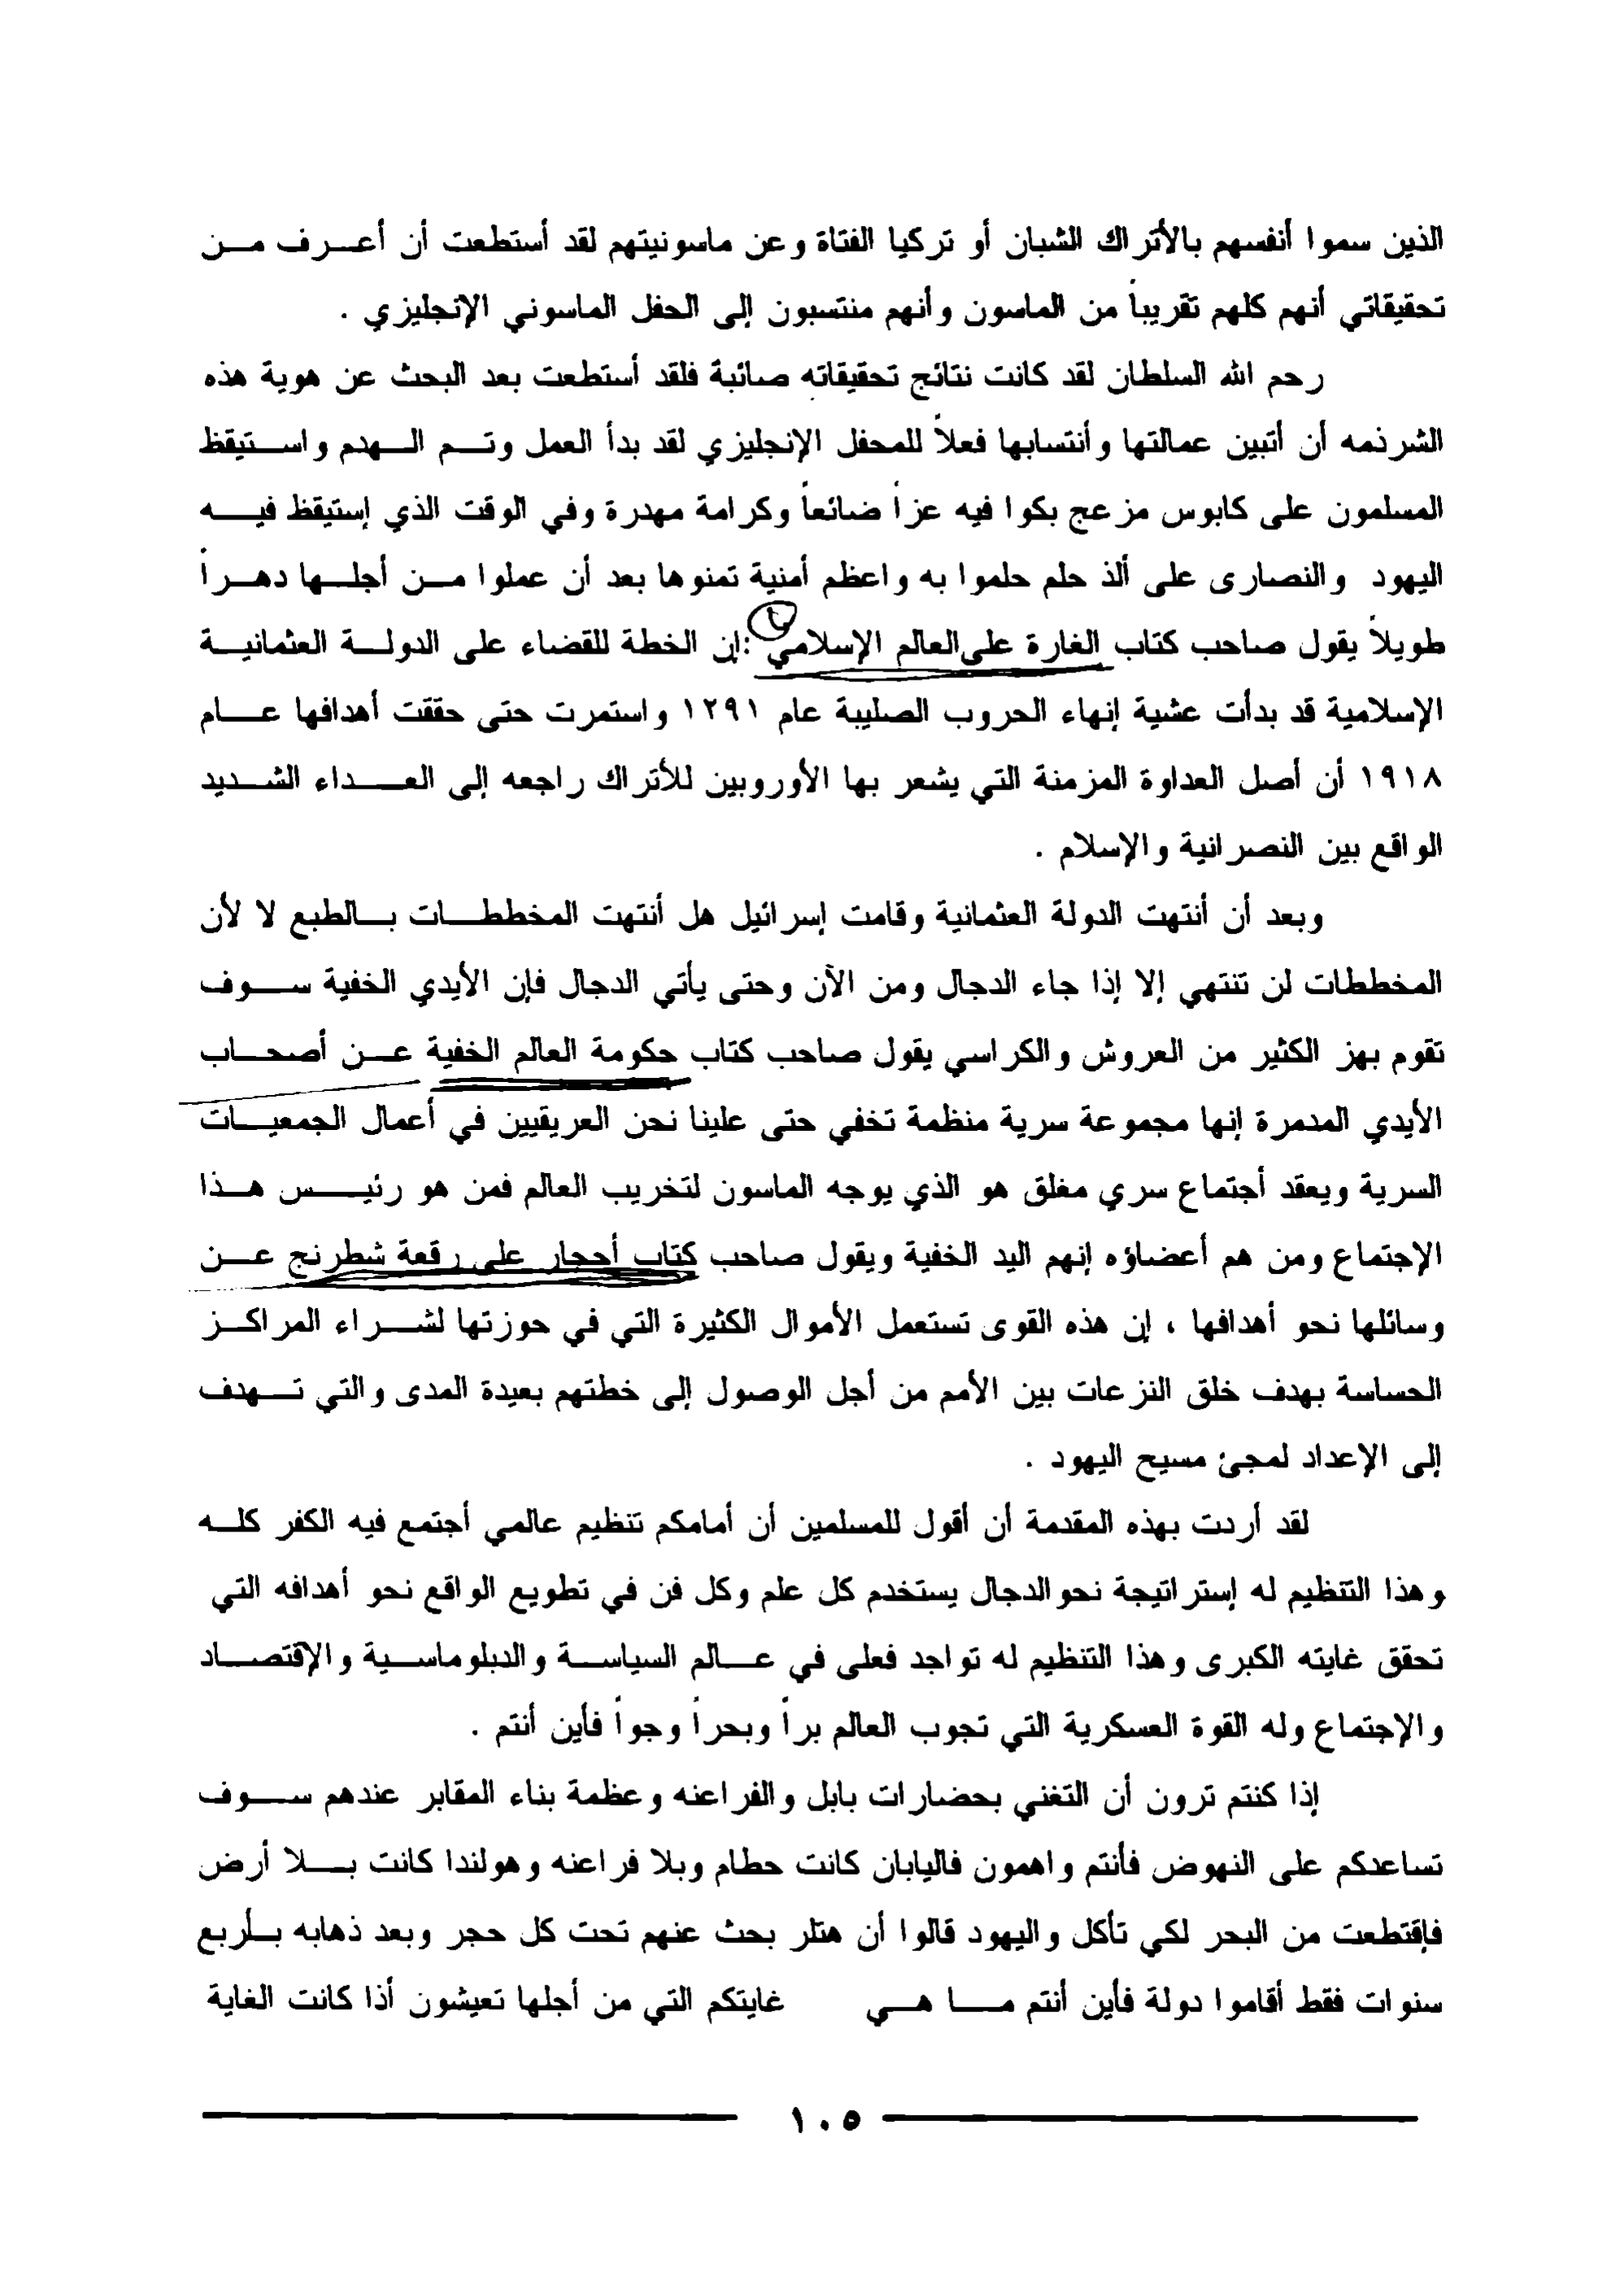 الذين سموا أنفسهم بالأتراك الشبان أو تركيا الفتاة وعن ماسونيتهم لقد أستطعت أن أعرف من
تحقيقاتي أنهم كلهم تقريباً من الماسون وأنهم منتسبون إلى الحفل الماسوني الإنجليزي .
رحم الله السلطان لقد كانت نتائج تحقيقاته صائبة فلقد أستطعت بعد البحث عن هوية هذه
الشرنمه أن أتبين عمالتها وأنتسابها فعلاً للمحفل الإنجليزي لقد بدأ العمل وتم الهدم واستيقظ
المسلمون على كابوس مزعج بكوا فيه عزاً ضائعاً وكرامة مهدرة وفي الوقت الذي إستيقظ فيه
اليهود والنصارى على ألذ حلم حلموا به واعظم أمنية تمنوها بعد أن عملوا من أجلها دهراً
طويلاً يقول صاحب كتاب الغارة على العالم الإسلامي :إن الخطة للقضاء على الدولة العثمانية
الإسلامية قد بدأت عشية إنهاء الحروب الصليبة عام ١٢٩١ واستمرت حتى حققت أهدافها عام
١٩١٨ أن أصل العداوة المزمنة التي يشعر بها الأوروبين للأتراك راجعه إلى العداء الشديد
الواقع بين النصرانية والإسلام .
وبعد أن أنتهت الدولة العثمانية وقامت إسرائيل هل أنتهت المخططات بالطبع لا لأن
المخططات لن تنتهي إلا إذا جاء الدجال ومن الآن وحتى يأتي الدجال فإن الأيدي الخفية سوف
تقوم بهز الكثير من العروش والكراسي يقول صاحب كتاب حكومة العالم الخفية عن أصحاب
الأيدي المدمرة إنها مجموعة سرية منظمة تخفي حتى علينا نحن العريقيين في أعمال الجمعيات
السرية ويعقد أجتماع سري مغلق هو الذي يوجه الماسون لتخريب العالم فمن هو رئيس هذا
الإجتماع ومن هم أعضاؤه إنهم اليد الخفية ويقول صاحب كتاب أحجار على رقعة شطرنج عن
وسائلها نحو أهدافها ، إن هذه القوى تستعمل الأموال الكثيرة التي في حوزتها لشراء المراكز
الحساسة بهدف خلق النزعات بين الأمم من أجل الوصول إلى خطتهم بعيدة المدى والتي تهدف
إلى الإعداد لمجئ مسيح اليهود .
لقد أردت بهذه المقدمة أن أقول للمسلمين أن أمامكم تنظيم عالمي أجتمع فيه الكفر كله
وهذا التنظيم له إستراتيجة نحو الدجال يستخدم كل علم وكل فن في تطويع الواقع نحو أهدافه التي
تحقق غايته الكبرى وهذا التنظيم له تواجد فعلى في عالم السياسة والدبلوماسية والإقتصاد
والإجتماع وله القوة العسكرية التي تجوب العالم براً وبحراً وجواً فأين أنتم .
إذا كنتم ترون أن التغني بحضارات بابل والفراعنه وعظمة بناء المقابر عندهم سوف
تساعدكم على النهوض فأنتم واهمون فاليابان كانت حطام وبلا فراعنه وهولندا كانت بلا أرض
فإقتطعت من البحر لكي تأكل واليهود قالوا أن هتلر بحث عنهم تحت كل حجر وبعد ذهابه بأربع
سنوات فقط أقاموا دولة فأين أنتم ما هي غايتكم التي من أجلها تعيشون أذا كانت الغاية
١٠٥